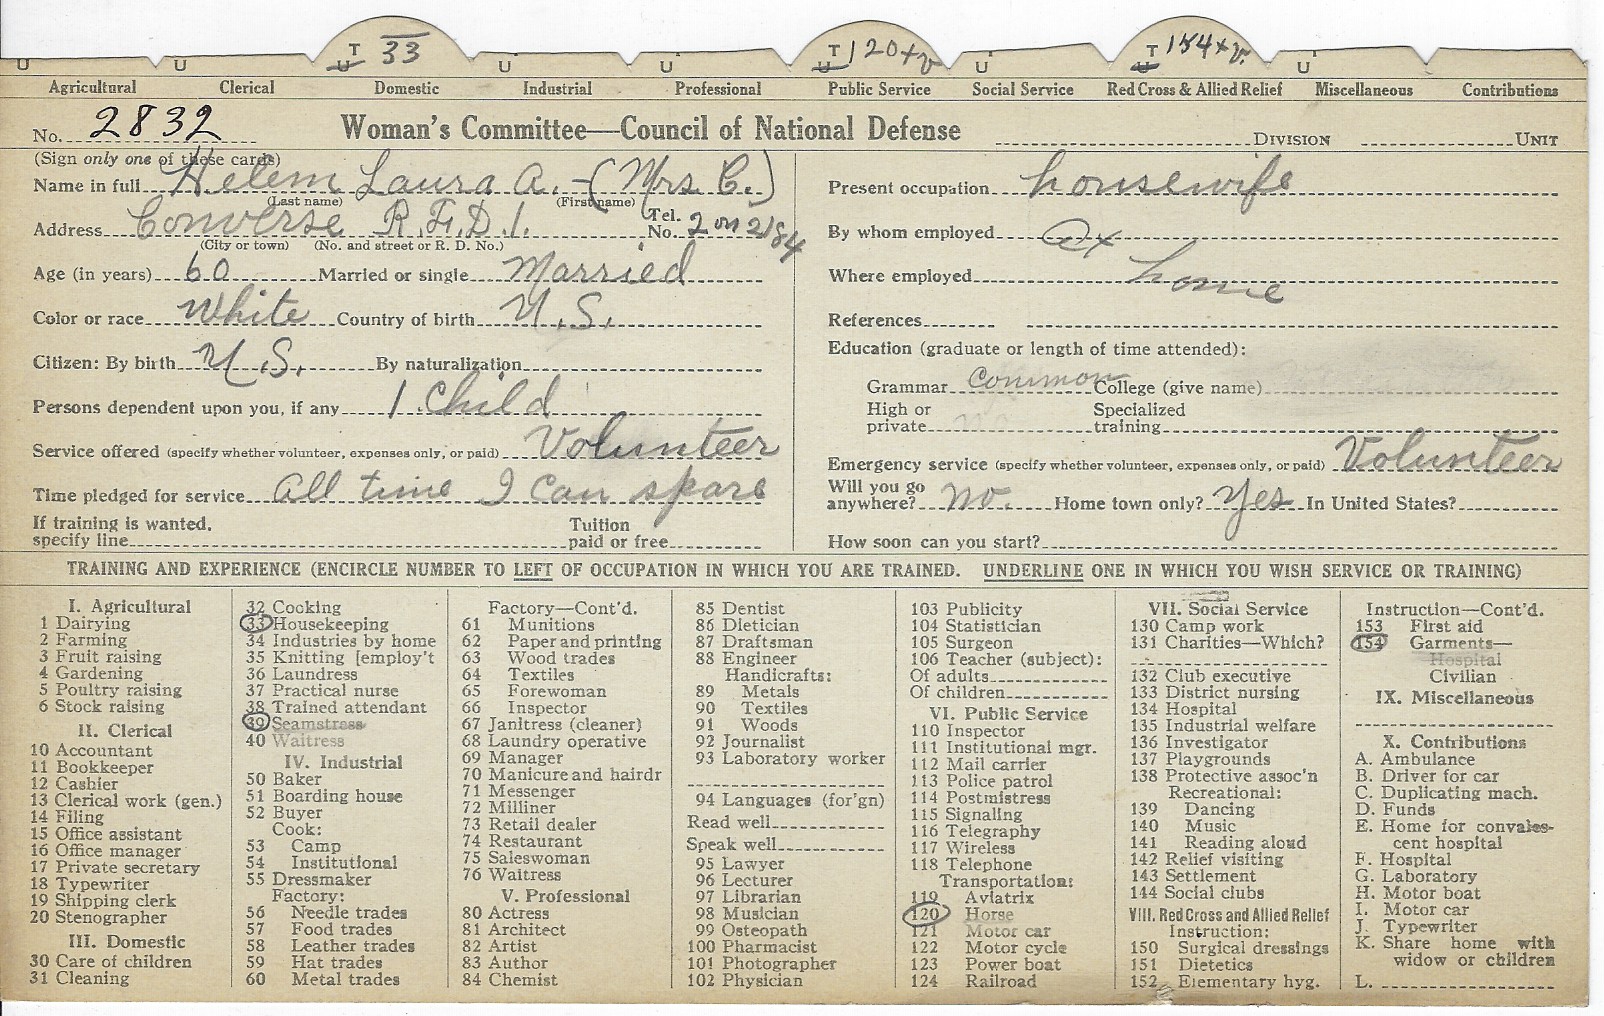 U U T 33 U U T 120+v U T 154+v. U
U
Agricultural Clerical Domestic Industrial Professional Public Service Social Service Red Cross & Allied Relief Miscellaneous Contributions
No. 2832 Woman's Committee—Council of National Defense DIVISION UNIT
(Sign only one of these cards)
Name in full Helem Laura A. - (Mrs C.)
(Last name) (First name)
Address Converse R.F.D.1. Tel. No. 2 on 2184
(City or town) (No. and street or R. D. No.)
Age (in years) 60 Married or single Married
Color or race White Country of birth U.S.
Citizen: By birth U.S. By naturalization
Persons dependent upon you, if any 1 Child
Service offered (specify whether volunteer, expenses only, or paid) Volunteer
Time pledged for service All time I can spare
If training is wanted, specify line Tuition paid or free
Present occupation housewife
By whom employed At
Where employed home
References
Education (graduate or length of time attended):
Grammar common College (give name)
High or private no Specialized training
Emergency service (specify whether volunteer, expenses only, or paid) Volunteer
Will you go anywhere? No. Home town only? Yes In United States?
How soon can you start?
TRAINING AND EXPERIENCE (ENCIRCLE NUMBER TO LEFT OF OCCUPATION IN WHICH YOU ARE TRAINED. UNDERLINE ONE IN WHICH YOU WISH SERVICE OR TRAINING)
I. Agricultural
1 Dairying
2 Farming
3 Fruit raising
4 Gardening
5 Poultry raising
6 Stock raising
II. Clerical
10 Accountant
11 Bookkeeper
12 Cashier
13 Clerical work (gen.)
14 Filing
15 Office assistant
16 Office manager
17 Private secretary
18 Typewriter
19 Shipping clerk
20 Stenographer
III. Domestic
30 Care of children
31 Cleaning
32 Cooking
33 Housekeeping
34 Industries by home
35 Knitting [employ't
36 Laundress
37 Practical nurse
38 Trained attendant
39 Seamstress
40 Waitress
IV. Industrial
50 Baker
51 Boarding house
52 Buyer
Cook:
53 Camp
54 Institutional
55 Dressmaker
Factory:
56 Needle trades
57 Food trades
58 Leather trades
59 Hat trades
60 Metal trades
Factory—Cont'd.
61 Munitions
62 Paper and printing
63 Wood trades
64 Textiles
65 Forewoman
66 Inspector
67 Janitress (cleaner)
68 Laundry operative
69 Manager
70 Manicure and hairdr
71 Messenger
72 Milliner
73 Retail dealer
74 Restaurant
75 Saleswoman
76 Waitress
V. Professional
80 Actress
81 Architect
82 Artist
83 Author
84 Chemist
85 Dentist
86 Dietician
87 Draftsman
88 Engineer
Handicrafts:
89 Metals
90 Textiles
91 Woods
92 Journalist
93 Laboratory worker
94 Languages (for'gn)
Read well
Speak well
95 Lawyer
96 Lecturer
97 Librarian
98 Musician
99 Osteopath
100 Pharmacist
101 Photographer
102 Physician
103 Publicity
104 Statistician
105 Surgeon
106 Teacher (subject):
Of adults
Of children
VI. Public Service
110 Inspector
111 Institutional mgr.
112 Mail carrier
113 Police patrol
114 Postmistress
115 Signaling
116 Telegraphy
117 Wireless
118 Telephone
Transportation:
119 Aviatrix
120 Horse
121 Motor car
122 Motor cycle
123 Power boat
124 Railroad
VII. Social Service
130 Camp work
131 Charities—Which?
132 Club executive
133 District nursing
134 Hospital
135 Industrial welfare
136 Investigator
137 Playgrounds
138 Protective assoc'n
Recreational:
139 Dancing
140 Music
141 Reading aloud
142 Relief visiting
143 Settlement
144 Social clubs
VIII. Red Cross and Allied Relief
Instruction:
150 Surgical dressings
151 Dietetics
152 Elementary hyg.
Instruction—Cont'd.
153 First aid
154 Garments—
Hospital
Civilian
IX. Miscellaneous
X. Contributions
A. Ambulance
B. Driver for car
C. Duplicating mach.
D. Funds
E. Home for convales-
cent hospital
F. Hospital
G. Laboratory
H. Motor boat
I. Motor car
J. Typewriter
K. Share home with
widow or children
L.